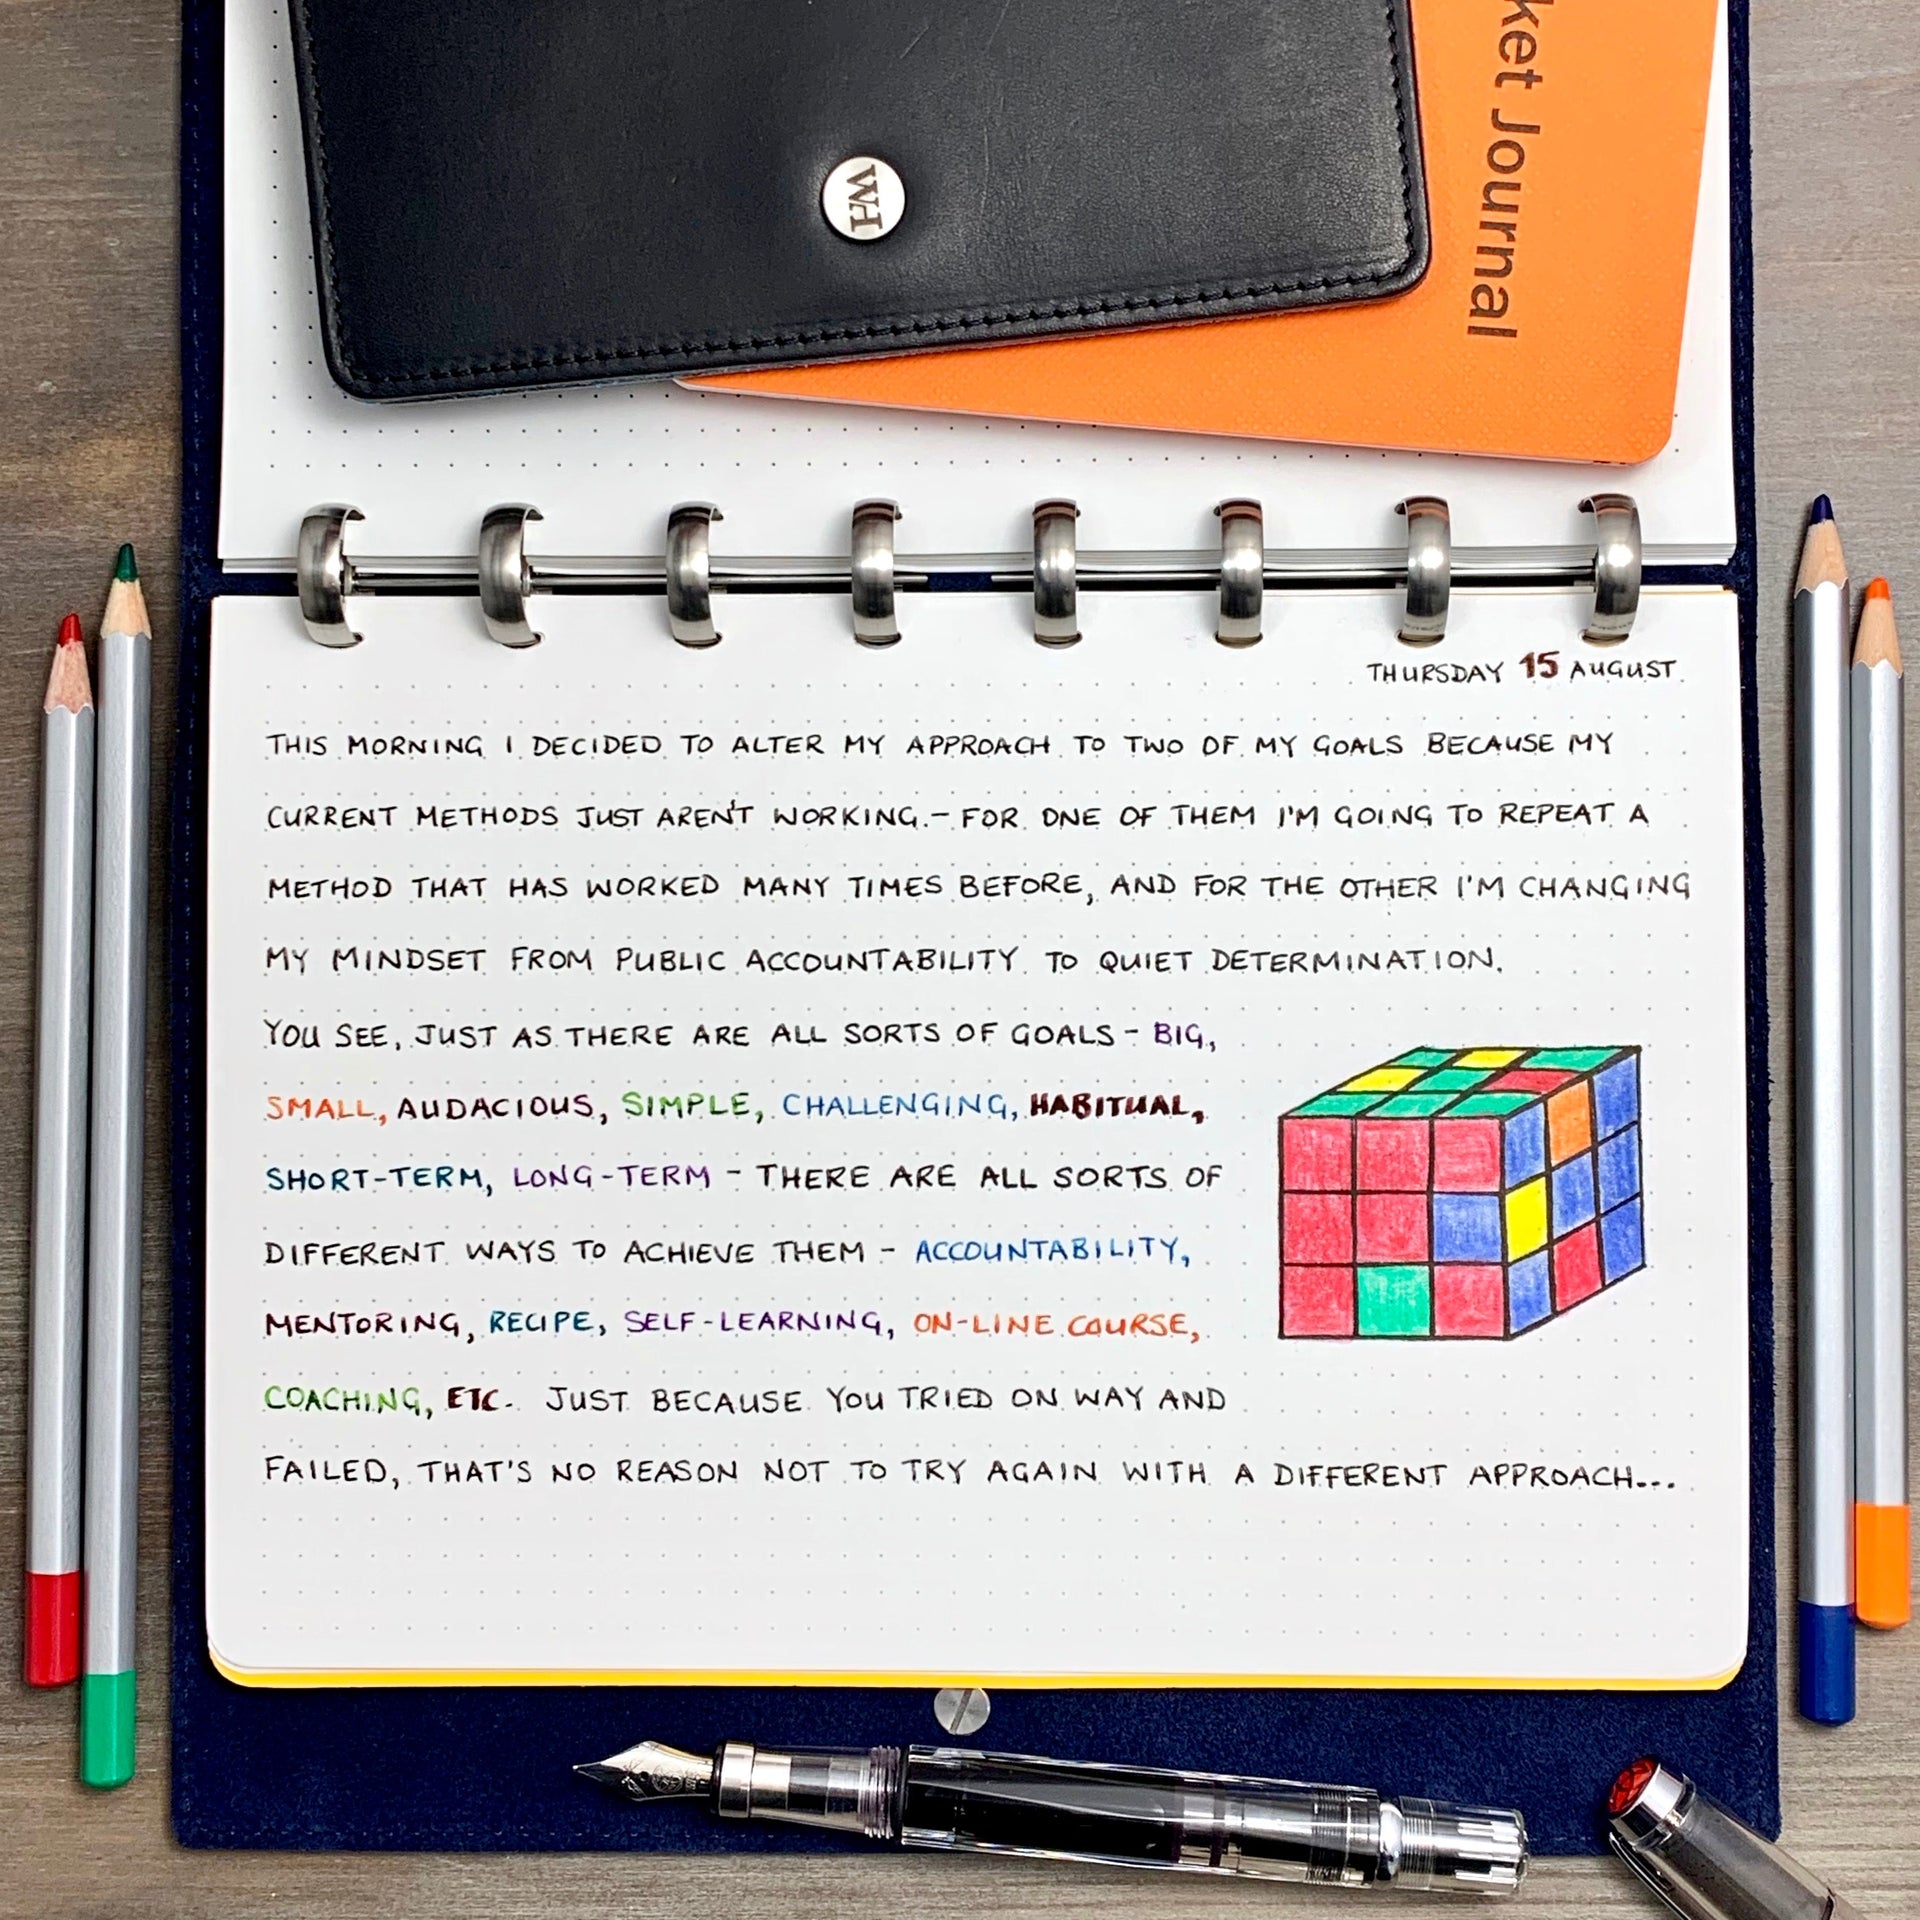 WH
ket Journal
THURSDAY 15 AUGUST.
THIS MORNING I DECIDED TO ALTER MY APPROACH TO TWO OF MY GOALS BECAUSE MY
CURRENT METHODS JUST AREN'T WORKING. – FOR ONE OF THEM I'M GOING TO REPEAT A
METHOD THAT HAS WORKED MANY TIMES BEFORE, AND FOR THE OTHER I'M CHANGING
MY MINDSET FROM PUBLIC ACCOUNTABILITY TO QUIET DETERMINATION.
YOU SEE, JUST AS THERE ARE ALL SORTS OF GOALS – BIG,
SMALL, AUDACIOUS, SIMPLE, CHALLENGING, HABITUAL,
SHORT-TERM, LONG-TERM – THERE ARE ALL SORTS OF
DIFFERENT WAYS TO ACHIEVE THEM – ACCOUNTABILITY,
MENTORING, RECIPE, SELF-LEARNING, ON-LINE COURSE,
COACHING, ETC. JUST BECAUSE YOU TRIED ON WAY AND
FAILED, THAT'S NO REASON NOT TO TRY AGAIN WITH A DIFFERENT APPROACH...